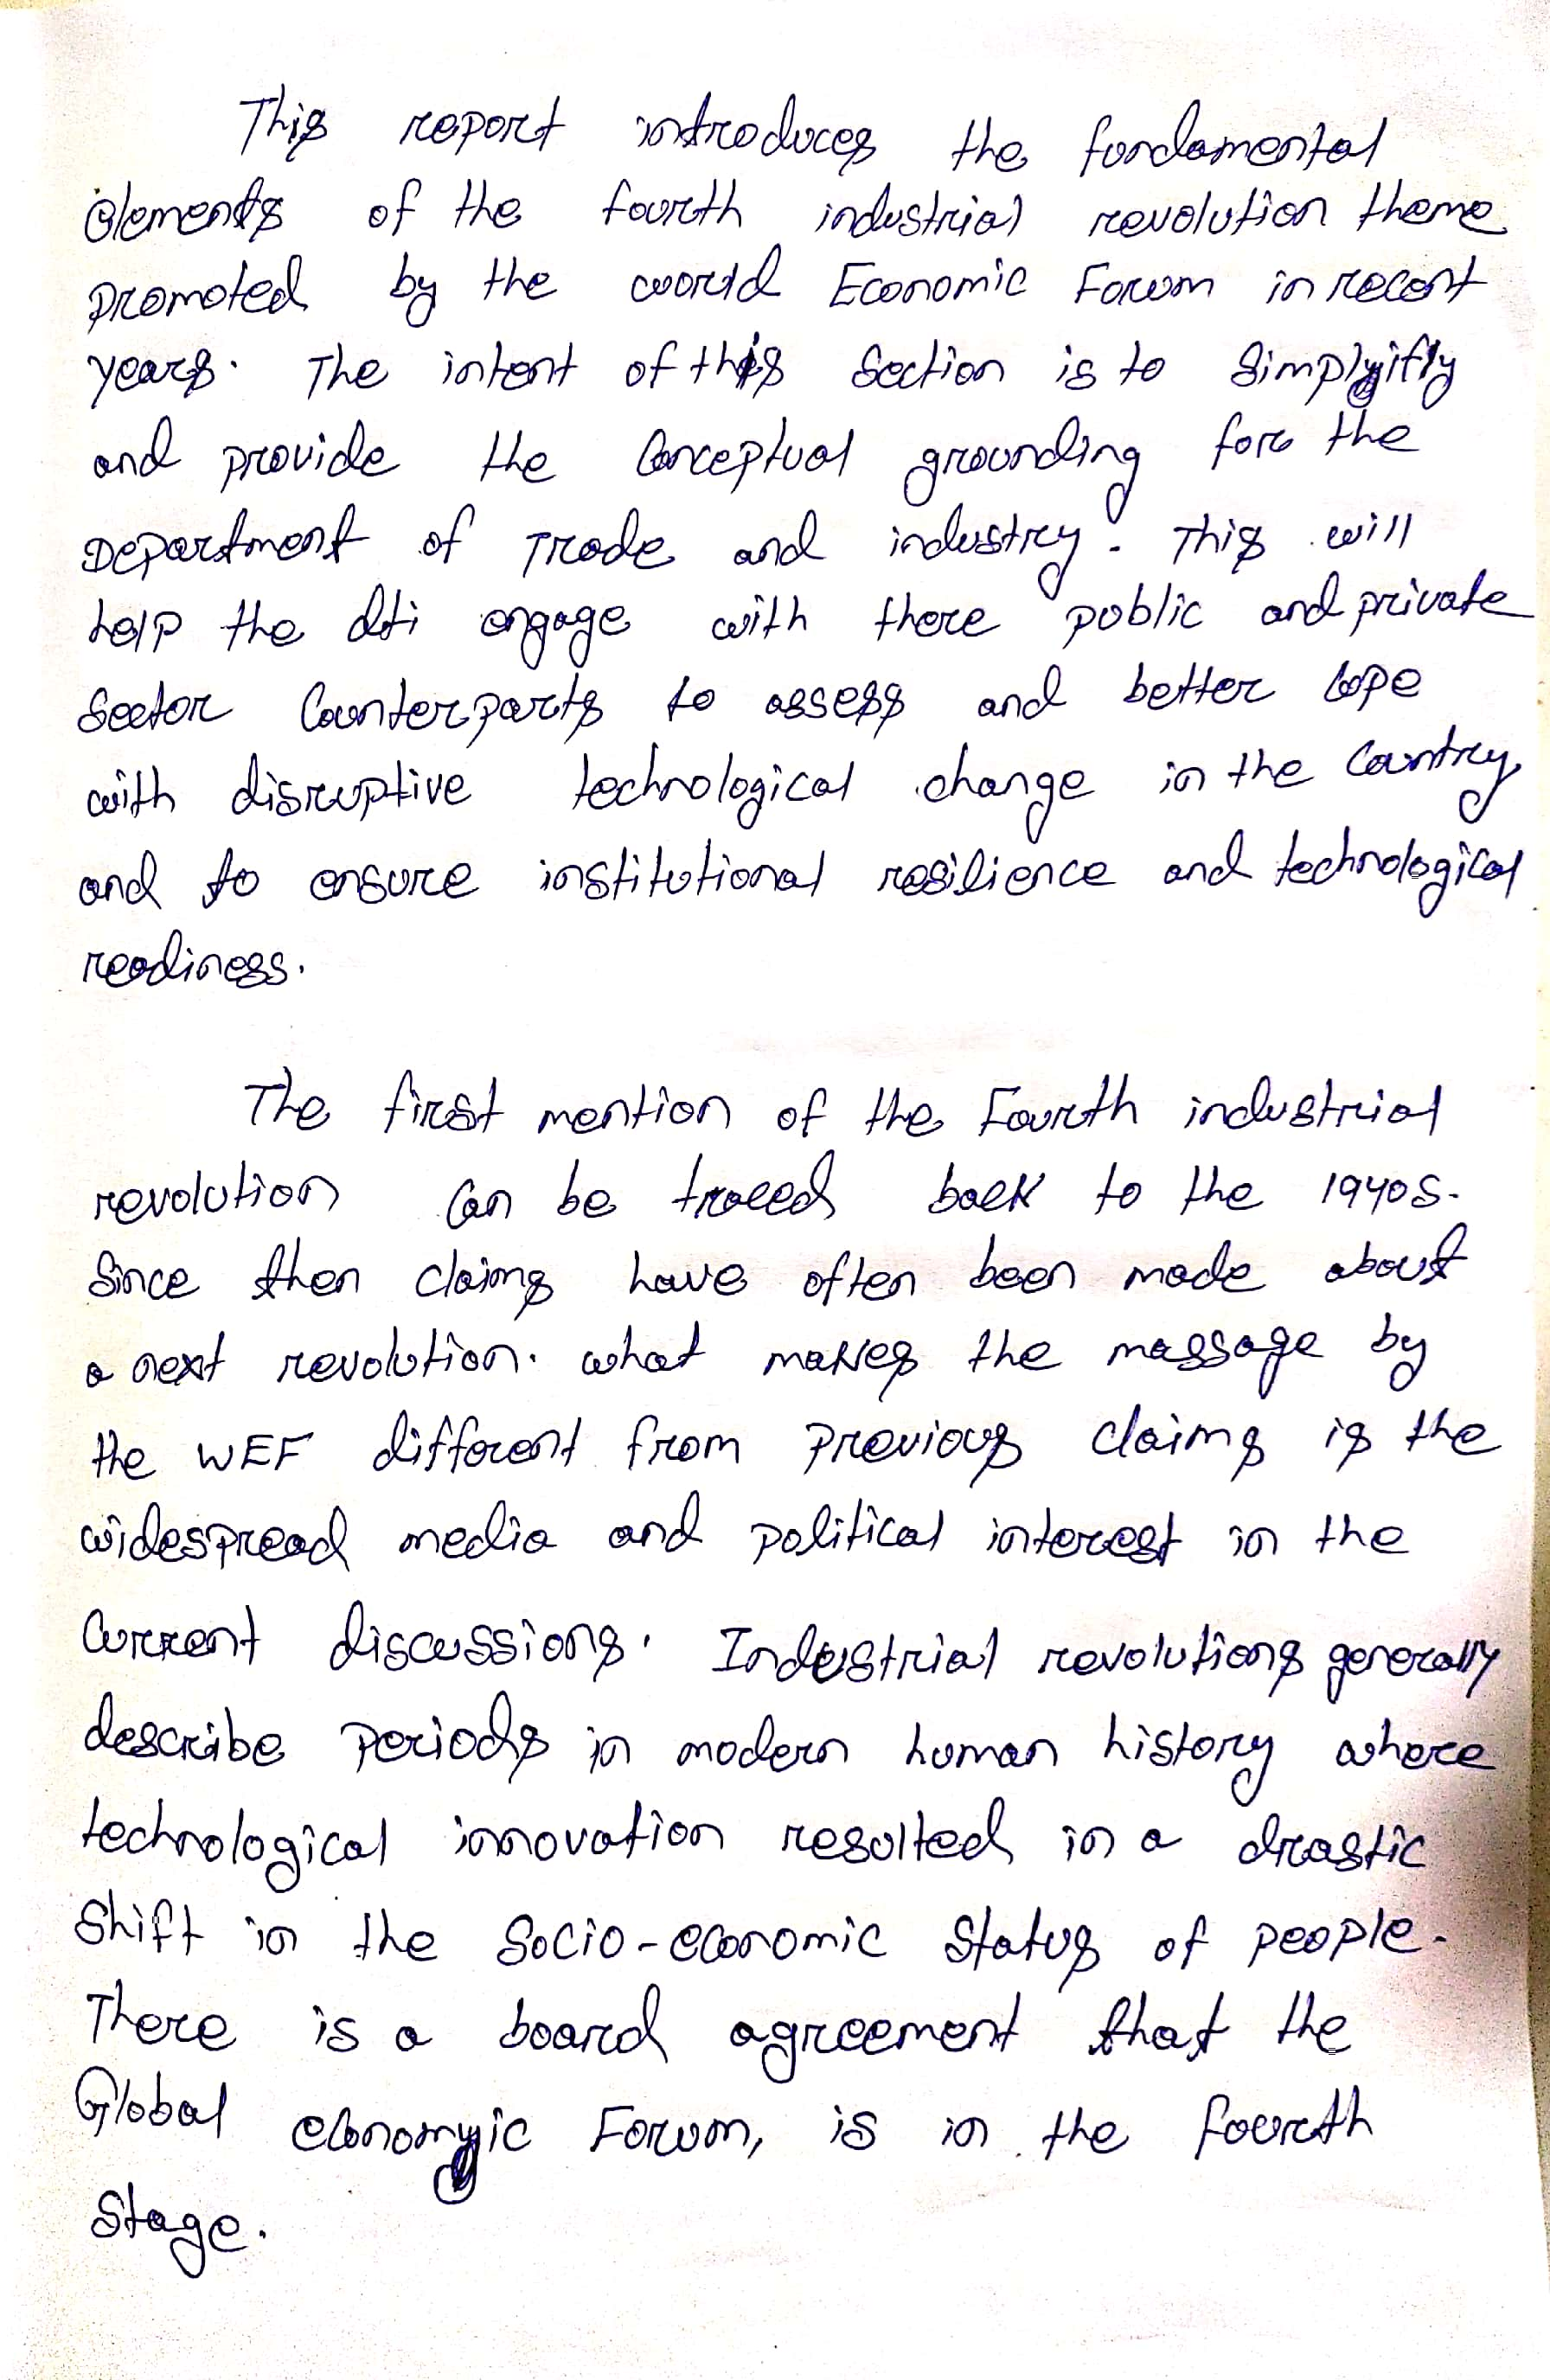 This report introduces the fundamental
elements of the fourth industrial revolution theme
promoted by the world Economic Forum in recent
years. The intent of this section is to simplyifly
and provide the Conceptual grounding for the
Department of Trade and industry. This will
help the dti engage with there public and private
Sector Counterparts to assess and better cope
with disruptive technological change in the Country
and to ensure institutional resilience and technological
readiness.
The first mention of the Fourth industrial
revolution Can be traced back to the 1940s.
Since then claims have often been made about
a next revolution. what makes the massage by
the WEF different from previous claims is the
widespread media and political interest in the
Current discussions. Industrial revolutions generally
describe periods in modern human history where
technological innovation resulted in a drastic
Shift in the Socio-economic Status of people.
There is a board agreement that the
Global economyic Forum, is in the fourth
Stage.